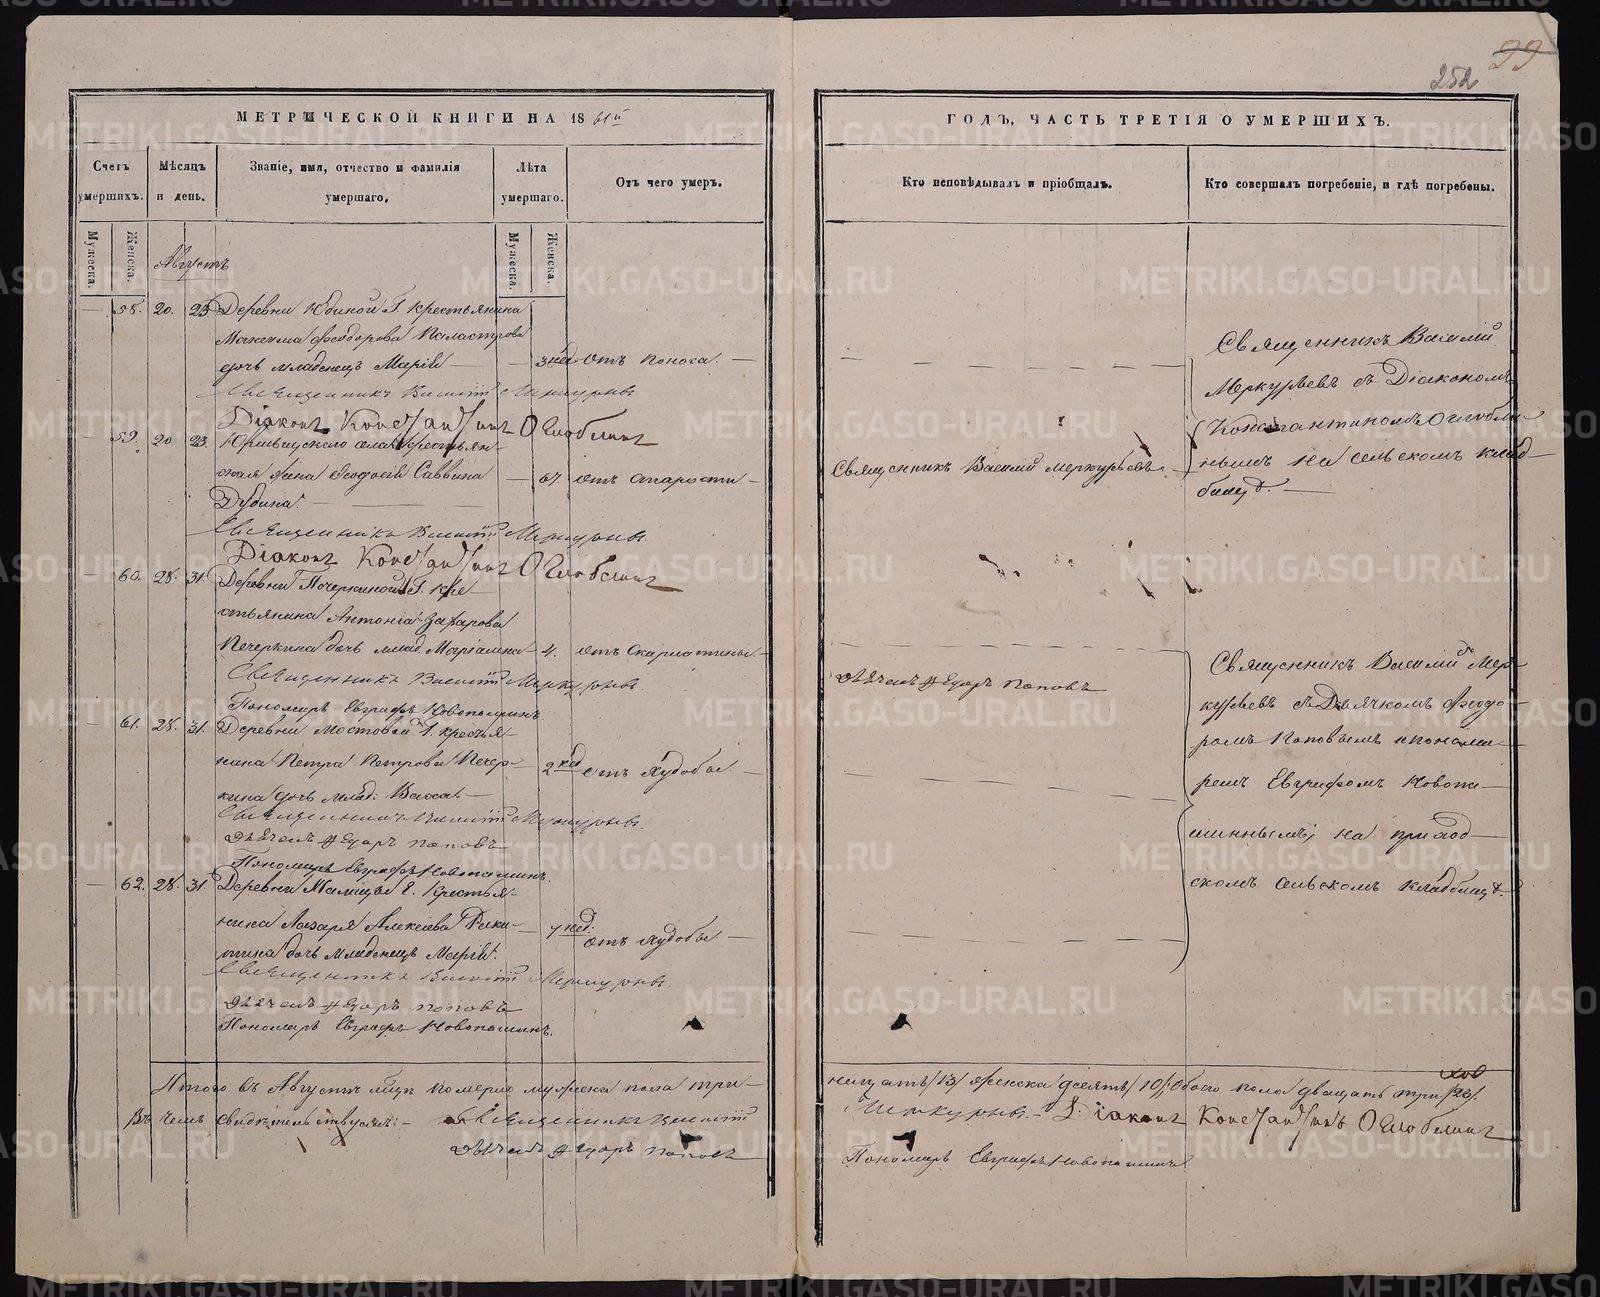 99
252
МЕТРИЧЕСКОЙ КНИГИ НА 1861й
Счетъ умершихъ.
Мѣсяцъ и день.
Званіе, имя, отчество и фамилія умершаго.
Лѣта умершаго.
Отъ чего умеръ.
Мужеска.
Женска.
Мужеска.
Женска.
Августъ
58. 20. 23 Деревни Юдиной Г. крестьянина
Максима Феодорова
дочь младенецъ Марія — 3 нед отъ поноса. —
Священникъ Василій Меркурьевъ
Діаконъ Константинъ Оглоблинъ
59. 20 23 села крестьян-
ская Феодосія Саввина — 67. отъ старости. —
Дубина. —
Священникъ Василій Меркурьевъ.
Діаконъ Константинъ Оглоблинъ
60. 28. 31. Деревни Печеркиной Г. кре-
стьянина Антонія Захарова
Печеркина дочь млад. Маріамна 4. отъ скарлатины. —
Священникъ Василій Меркурьевъ
Пономарь Евграфъ Новопашинъ
61. 28. 31. Деревни Мостовой Г. крестья-
нина Петра Петрова Печер-
кина дочь млад: Васса — 2 нед отъ худобы —
Священникъ Василій Меркурьевъ.
Дьячекъ Федоръ Поповъ
Пономарь Евграфъ Новопашинъ.
62. 28. 31. Деревни Крестья-
нина Лазаря Алексѣева Раки-
тина дочь младенецъ Марія. 7 нед: отъ худобы —
Священникъ Василій Меркурьевъ.
Дьячекъ Федоръ Поповъ
Пономарь Евграфъ Новопашинъ.
Итого въ Августѣ мѣцѣ померло мужеска пола три-
Въ чемъ свидѣтельствуемъ: — Священникъ Василій
Дьячекъ Федоръ Поповъ
ГОДЪ, ЧАСТЬ ТРЕТІЯ О УМЕРШИХЪ.
Кто исповѣдывалъ и пріобщалъ.
Кто совершалъ погребеніе, и гдѣ погребены.
Священникъ Василій
Меркурьевъ съ Діакономъ
Константиномъ Оглобли-
нымъ на сельскомъ клад-
бищѣ. —
Священникъ Василій Меркурьевъ.
Дьячекъ Федоръ Поповъ
Священникъ Василій Мер-
курьевъ съ Дьячкомъ Феодо-
ромъ Поповымъ и понома-
ремъ Евграфомъ Новопа-
шиннымъ, на приход-
скомъ сельскомъ кладбищѣ.
надцать /13/ женска десять /10/, обоего пола двадцать три /23/.
Меркурьевъ. — Діаконъ Константинъ Оглоблинъ
Пономарь Евграфъ Новопашинъ
METRIKI.GASO-URAL.RU